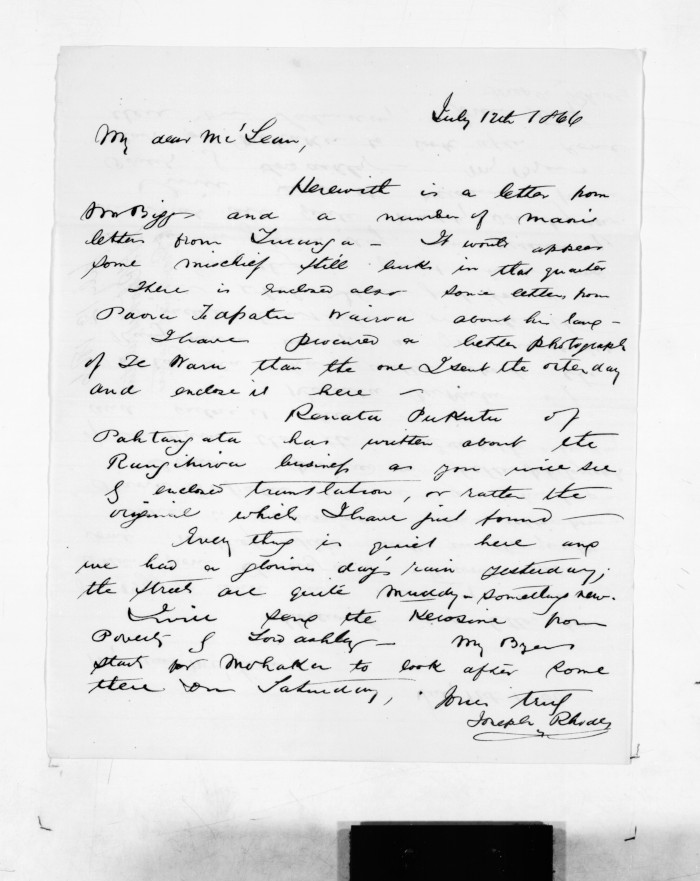 July 12th 1866
My dear McLean,
Herewith is a letter from
Mr Biggs and a number of maori
letters from Turunga - It would appear
some mischief still lurks in that quarter
There is enclosed also some letters from
Paora Wairoa about his land -
I have procured a better photograph
of Te Waru than the one I sent the other day
and enclose it here -
Renata Pukututu of
Pahtangata has written about the
business as you will see
by enclosed translation, or rather the
original which I have just found -
Every thing is quiet here and
we had a glorious day's rain yesterday;
the streets are quite muddy - something new -
I will send the Kerosine from
Poverty by Lord Ashley - My
start for Mohaka to look after some
there on Saturday,
Yours truly
Joseph Rhodes